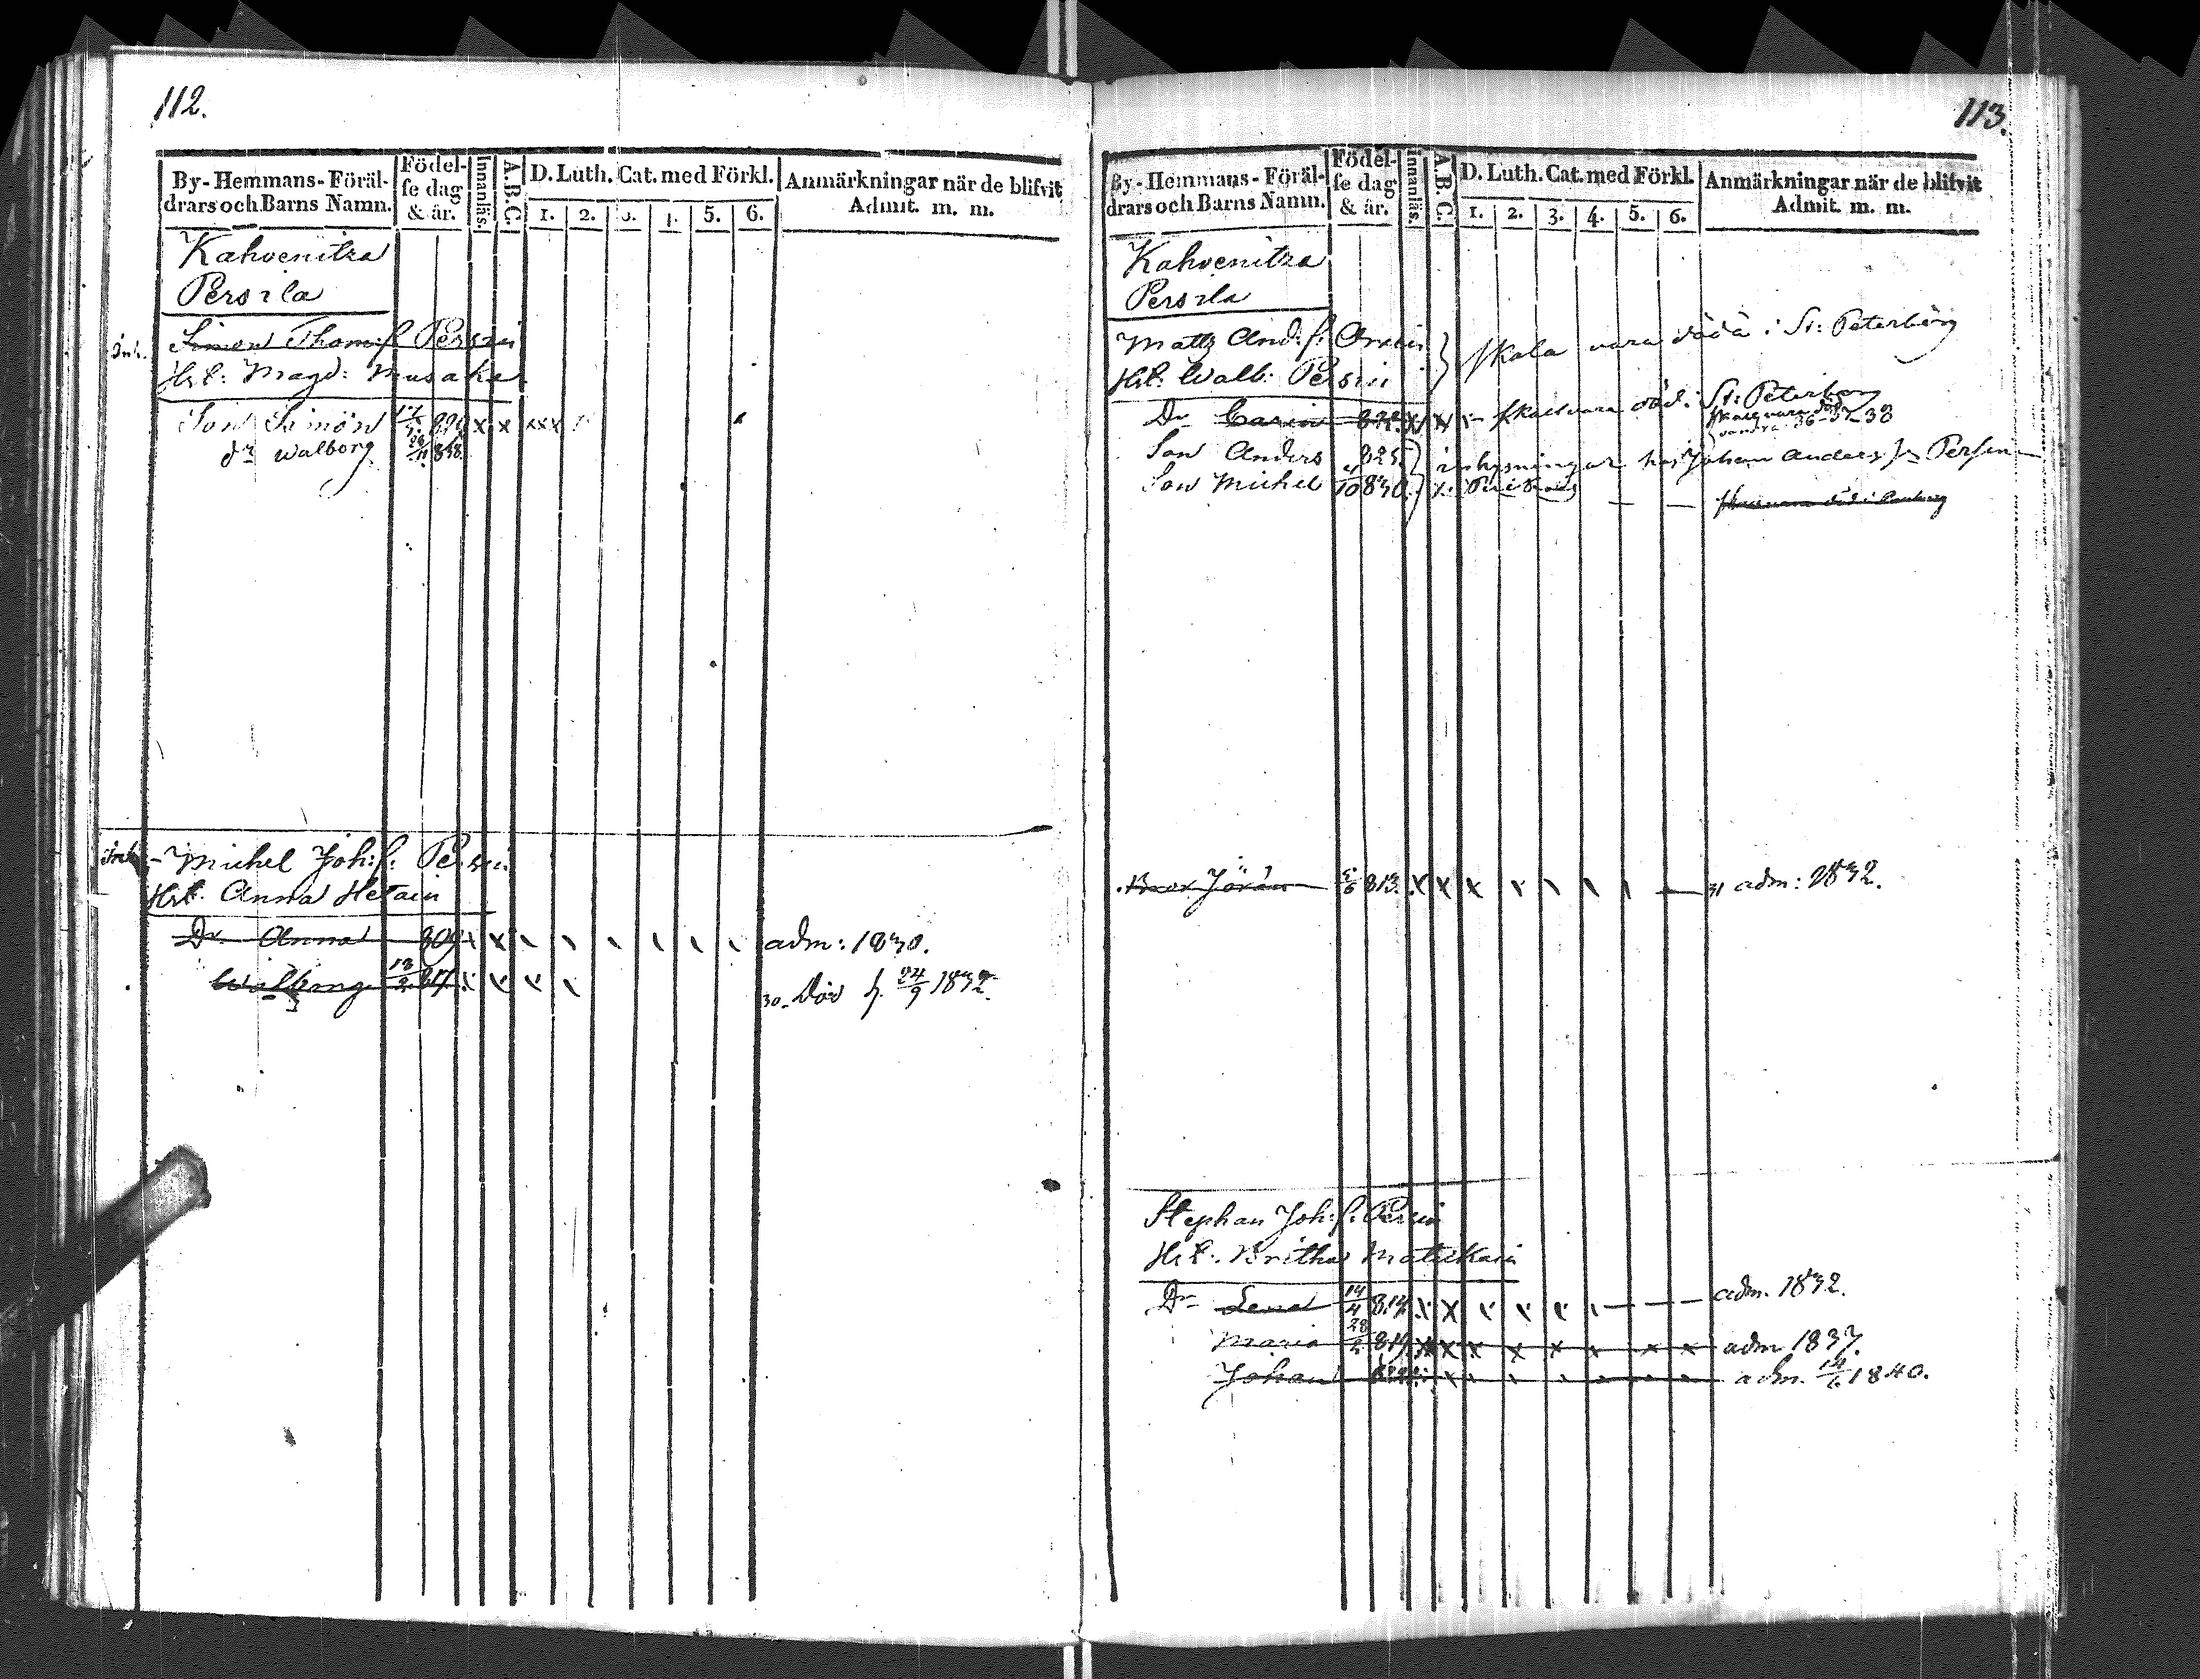 112.
By-Hemmans-Föräl-
drars och Barns Namn.
Födel-
se dag
& år.
Innanläs.
A.B.C.
D. Luth. Cat. med Förkl.
1. 2. 3. 4. 5. 6.
Anmärkningar när de blifvit
Admit. m. m.
Kahvenitza
Persila
Inh. Simon Thom:s. Persin
Hst: Magd: Musaka
Son Simon x x xxx
dr Walborg
Inh. - Michel Joh:s: Persin
Hst. Anna Hetain
Dr Anna 809 adm: 1830.
Walborg 13/2 817 30. Död d. 24/9 1832.
113.
By-Hemmans-Föräl-
drars och Barns Namn.
Födel-
se dag
& år.
Innanläs.
A.B.C.
D. Luth. Cat. med Förkl.
1. 2. 3. 4. 5. 6.
Anmärkningar när de blifvit
Admit. m. m.
Kahvenitza
Persila
Mattz And:s: } skola vara döda i St: Peterborg
Hst: Walb: Persin
Dr Carin 822 skall vara död i St: Peterborg
36-37-38
Son Anders 825 inhysningar hos Johan Anders Persin
Son Michel 10 830
Bror Jöran 5/6 813. x x x 31 adm: 1832.
Stephan Joh:s: Persin
Hst: Britha Matikain
Dr Lena 14/4 814 adm. 1832.
Maria 28/2 819 x x x x x x x x adm 1837.
Johan adm. 14/6 1840.